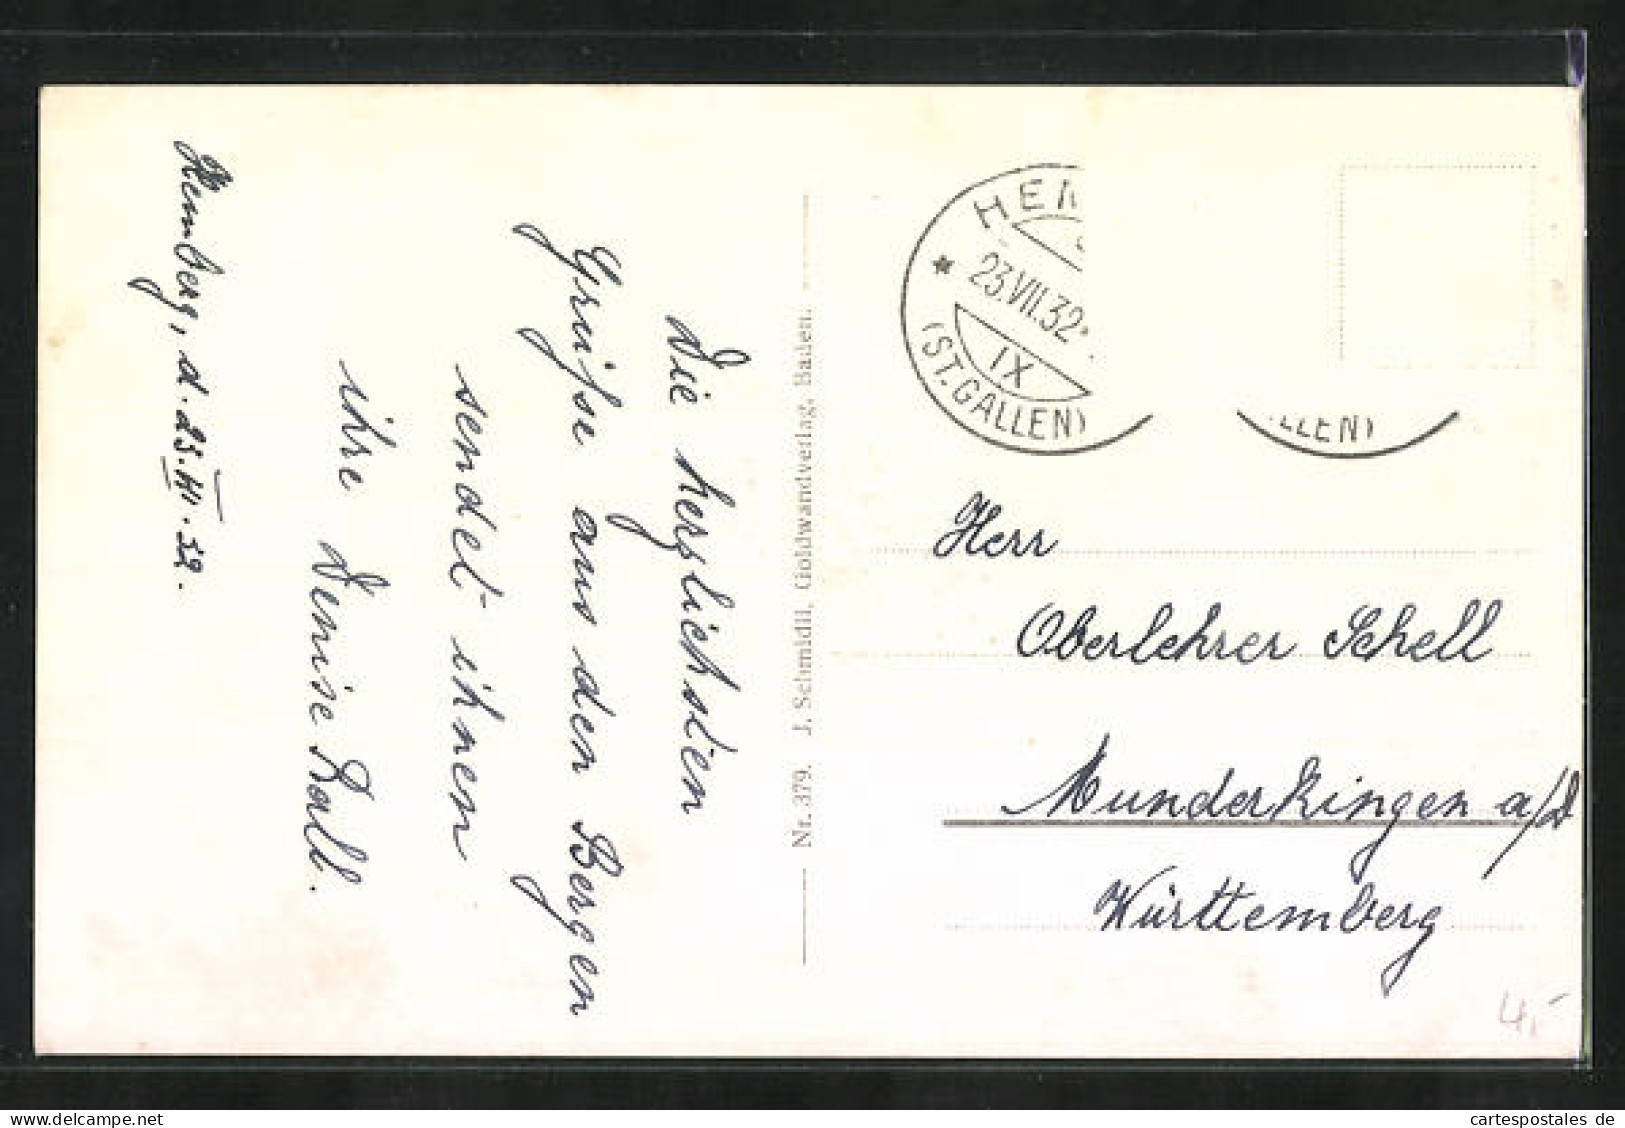 Hemberg, d. 23. VII. 32.
Die herzlichsten
Grüsse aus den Bergen
sendet ihnen
ihre Denise Rall.
Nr. 379. J. Schmidli, Goldwandverlag, Baden.
HEM
23.VII.32
IX
(ST.GALLEN)
LLEN)
Herr
Oberlehrer Schell
Munderkingen a/D
Württemberg
4,-
cartespostales de